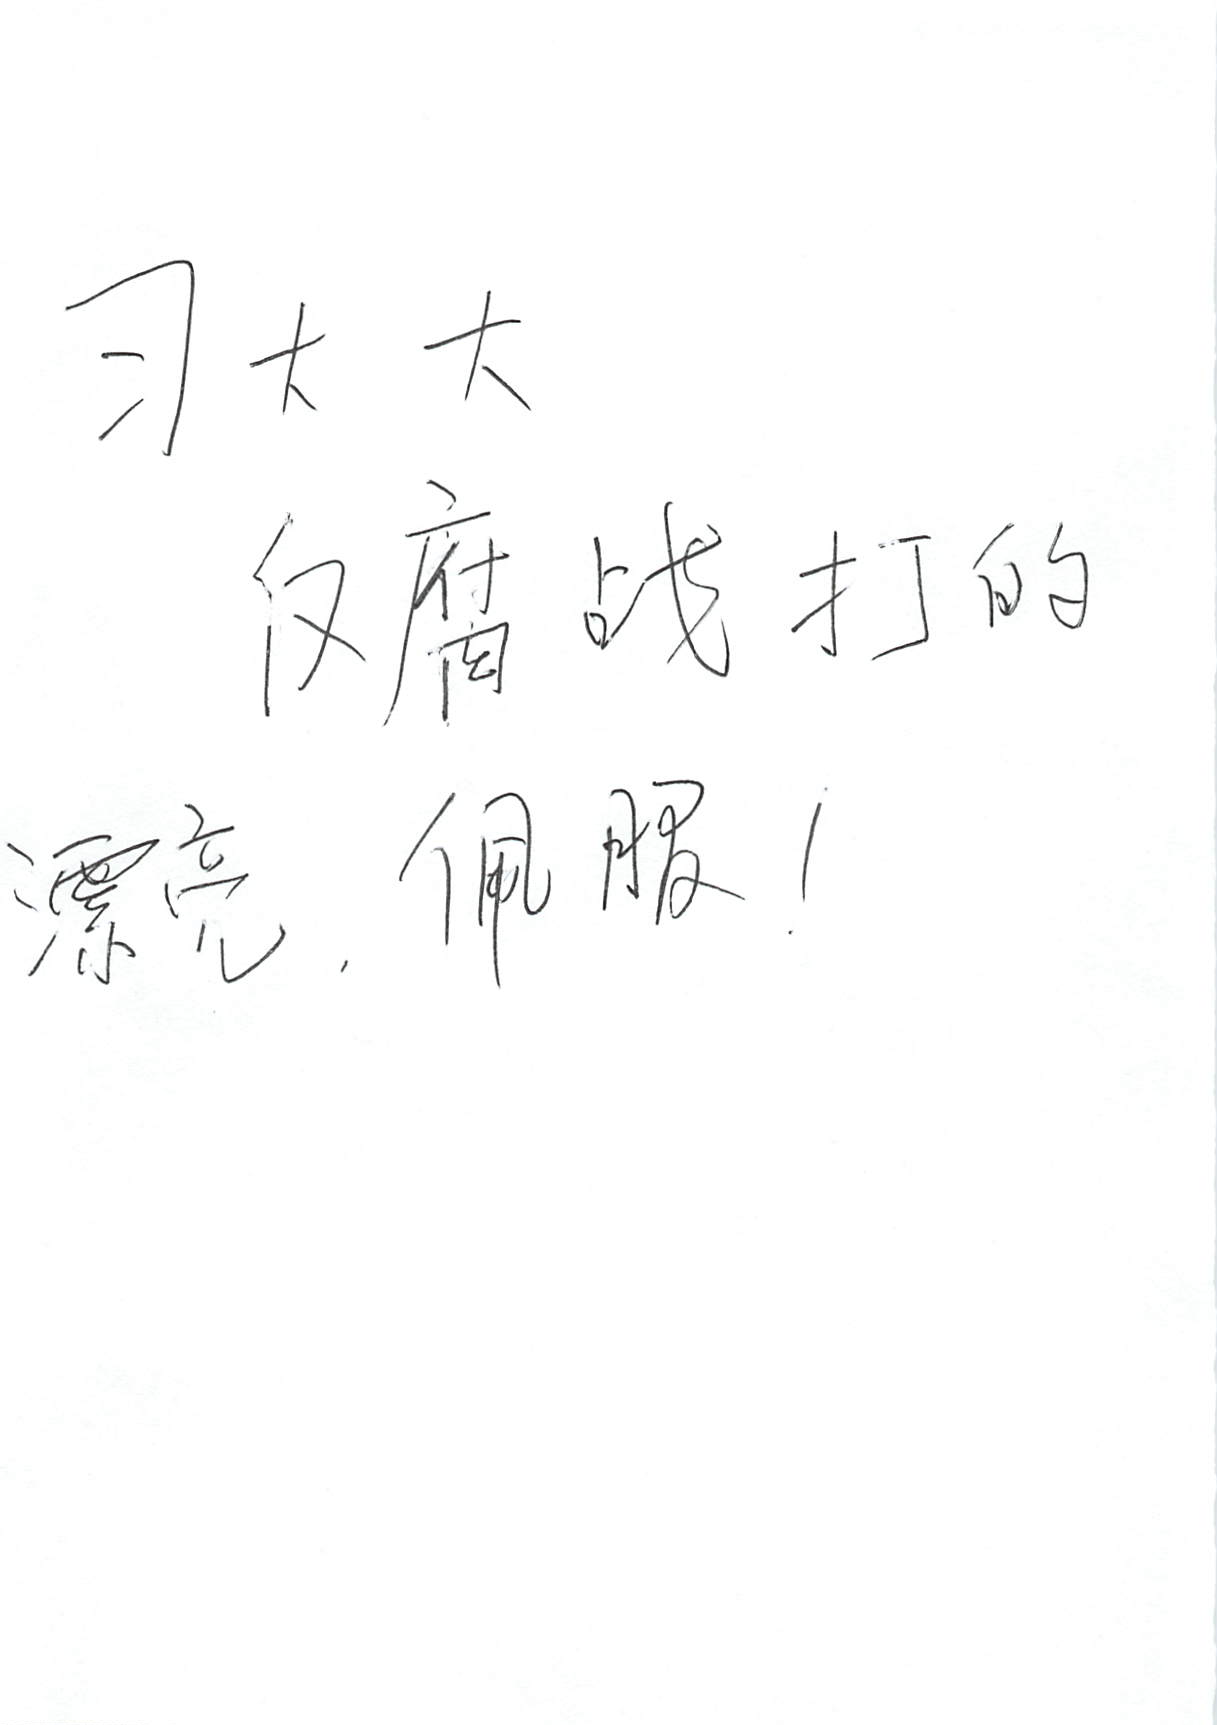 习大大
反腐战打的
漂亮，佩服！